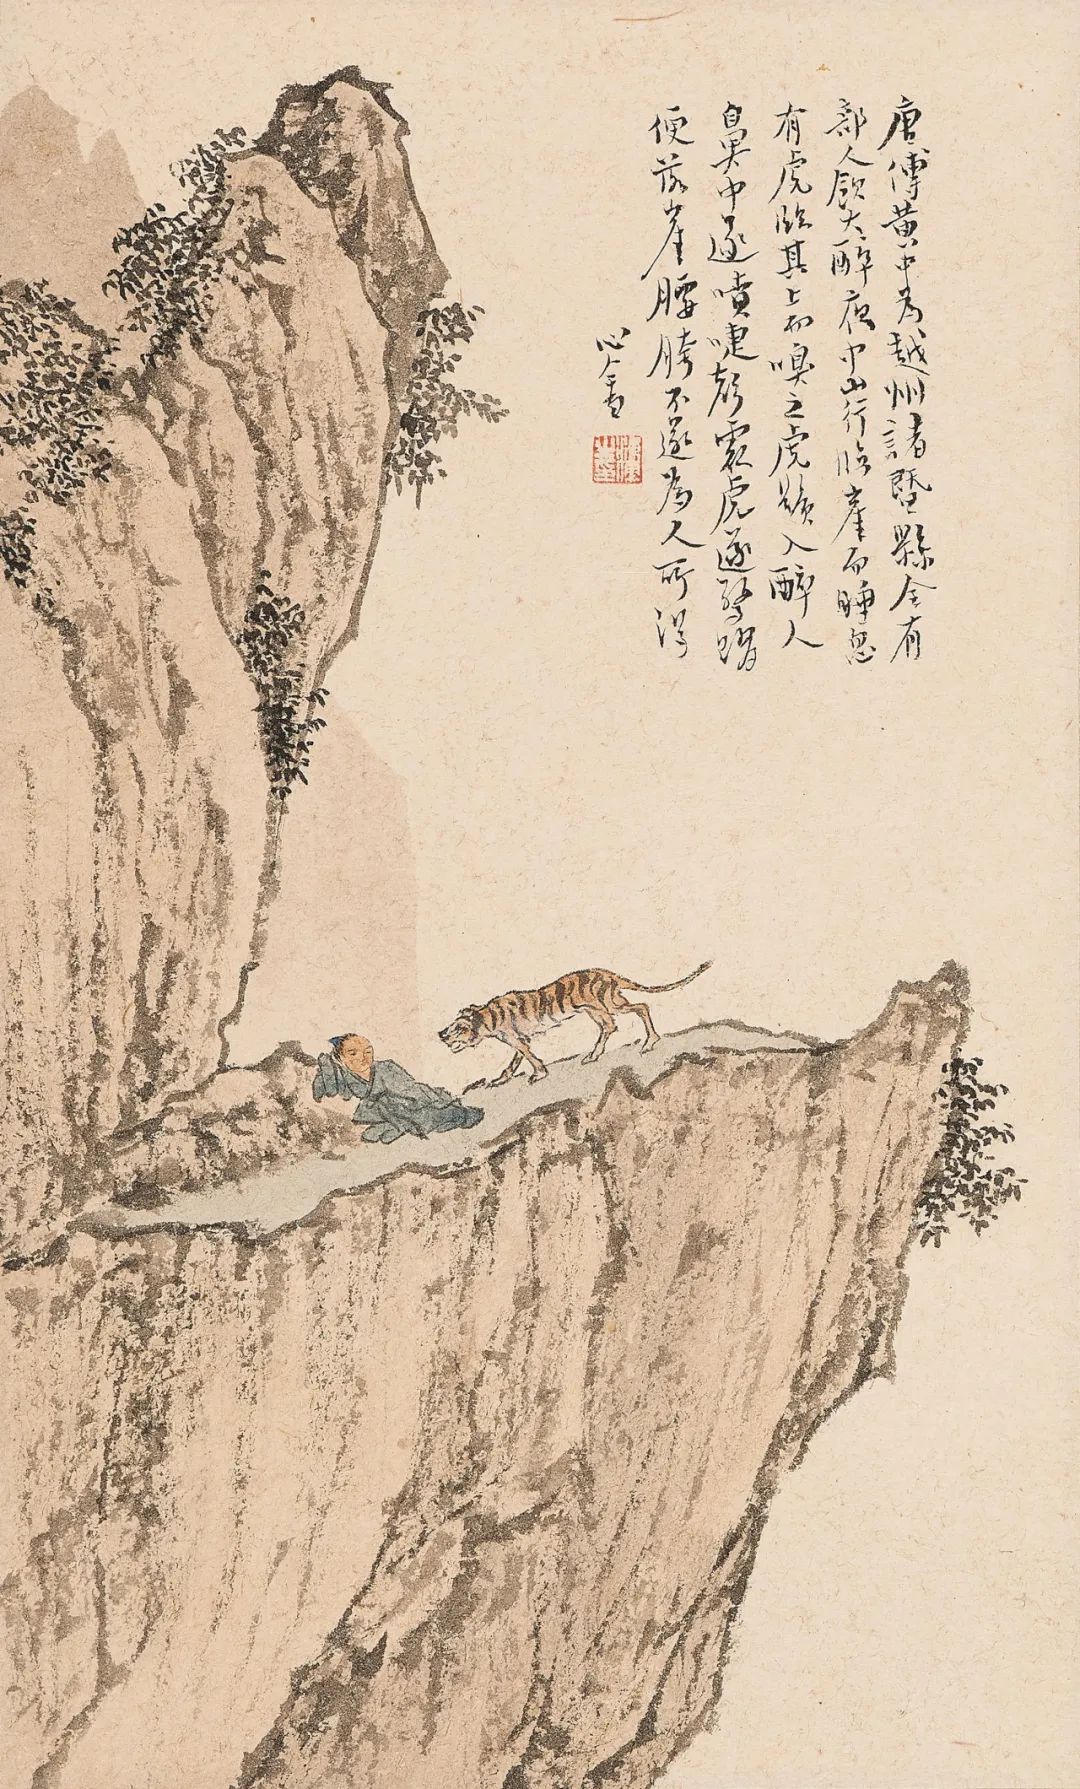 唐傅黄中为越州諸暨縣令有
部人飲大醉夜中山行臨崖而睡忽
有虎臨其上而嗅之虎鬚入醉人
鼻中遂噴嚏聲震虎遂驚躍
便落崖腰胯不遂為人所得
心畬